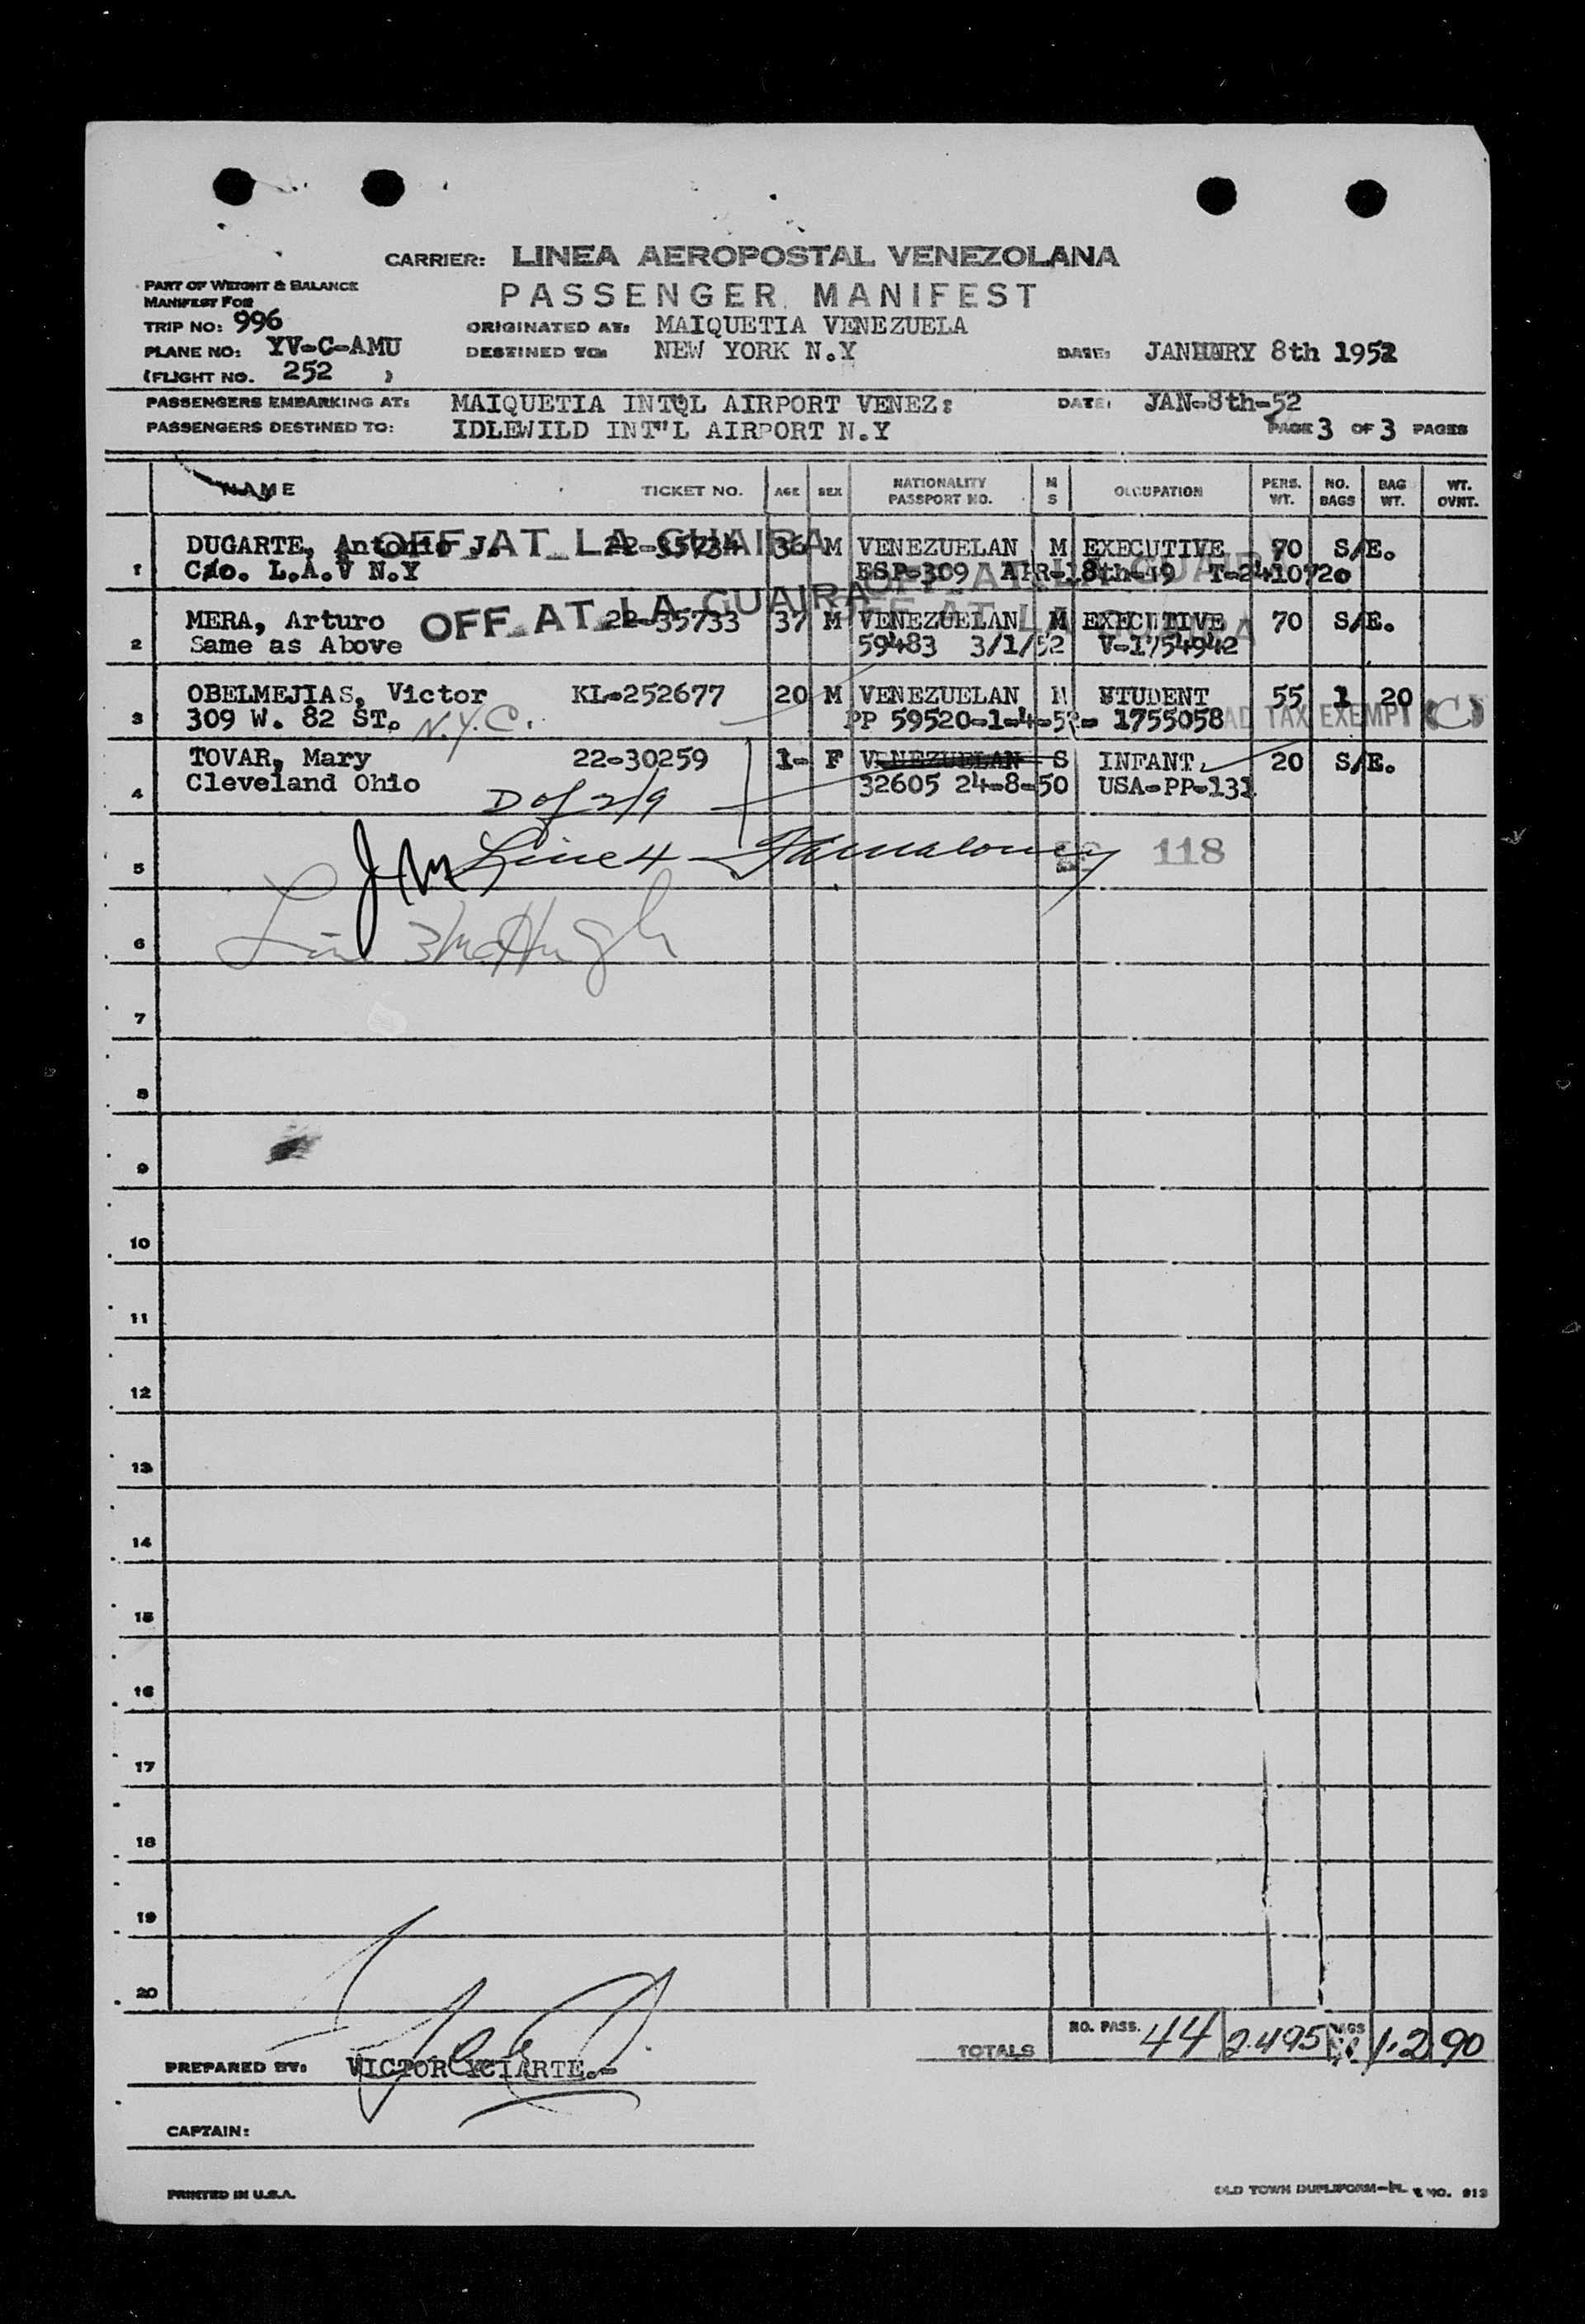 CARRIER: LINEA AEROPOSTAL VENEZOLANA
PART OF WEIGHT & BALANCE
MANIFEST FOR
PASSENGER MANIFEST
TRIP NO: 996
ORIGINATED AT: MAIQUETIA VENEZUELA
PLANE NO: YV-C-AMU
DESTINED TO: NEW YORK N.Y
DATE: 8th 1952
(FLIGHT NO. 252 )
PASSENGERS EMBARKING AT: MAIQUETIA INTQL AIRPORT VENEZ:
DATE: JAN-8th-52
PASSENGERS DESTINED TO: IDLEWILD INT"L AIRPORT N.Y
PAGE 3 OF 3 PAGES
NAME TICKET NO. AGE SEX NATIONALITY PASSPORT NO. M S OCCUPATION PERS. WT. NO. BAGS BAG WT. WT. OVNT.
OFF AT LA GUAIRA
DUGARTE, Antonio J. 22-35734 36 M VENEZUELAN M EXECUTIVE 70 S/E.
1 C/o. L.A.V N.Y ESP-309 APR-18th-49 T-2410720
OFF AT LA GUAIRA
MERA, Arturo 22-35733 37 M VENEZUELAN M EXECUTIVE 70 S/E.
2 Same as Above 59483 3/1/52 V-1754942
OBELMEJIAS, Victor KL-252677 20 M VENEZUELAN STUDENT 55 1 20
3 309 W. 82 ST. N.Y.C. PP 59520-1-4-52- 1755058
TAX EXEMPT (C)
TOVAR, Mary 22-30259 1- F VENEZUELAN S INFANT. 20 S/E.
4 Cleveland Ohio 32605 24-8-50 USA-PP-131
D of 2/9
5 JM Line 4 118
6 Line 3 McHugh
7
8
9
10
11
12
13
14
15
16
17
18
19
20
TOTALS NO. PASS. 44 2495 1.290
PREPARED BY: VICTOR YCIARTE.-
CAPTAIN:
PRINTED IN U.S.A.
OLD TOWN DUPLIFORM NO. 913